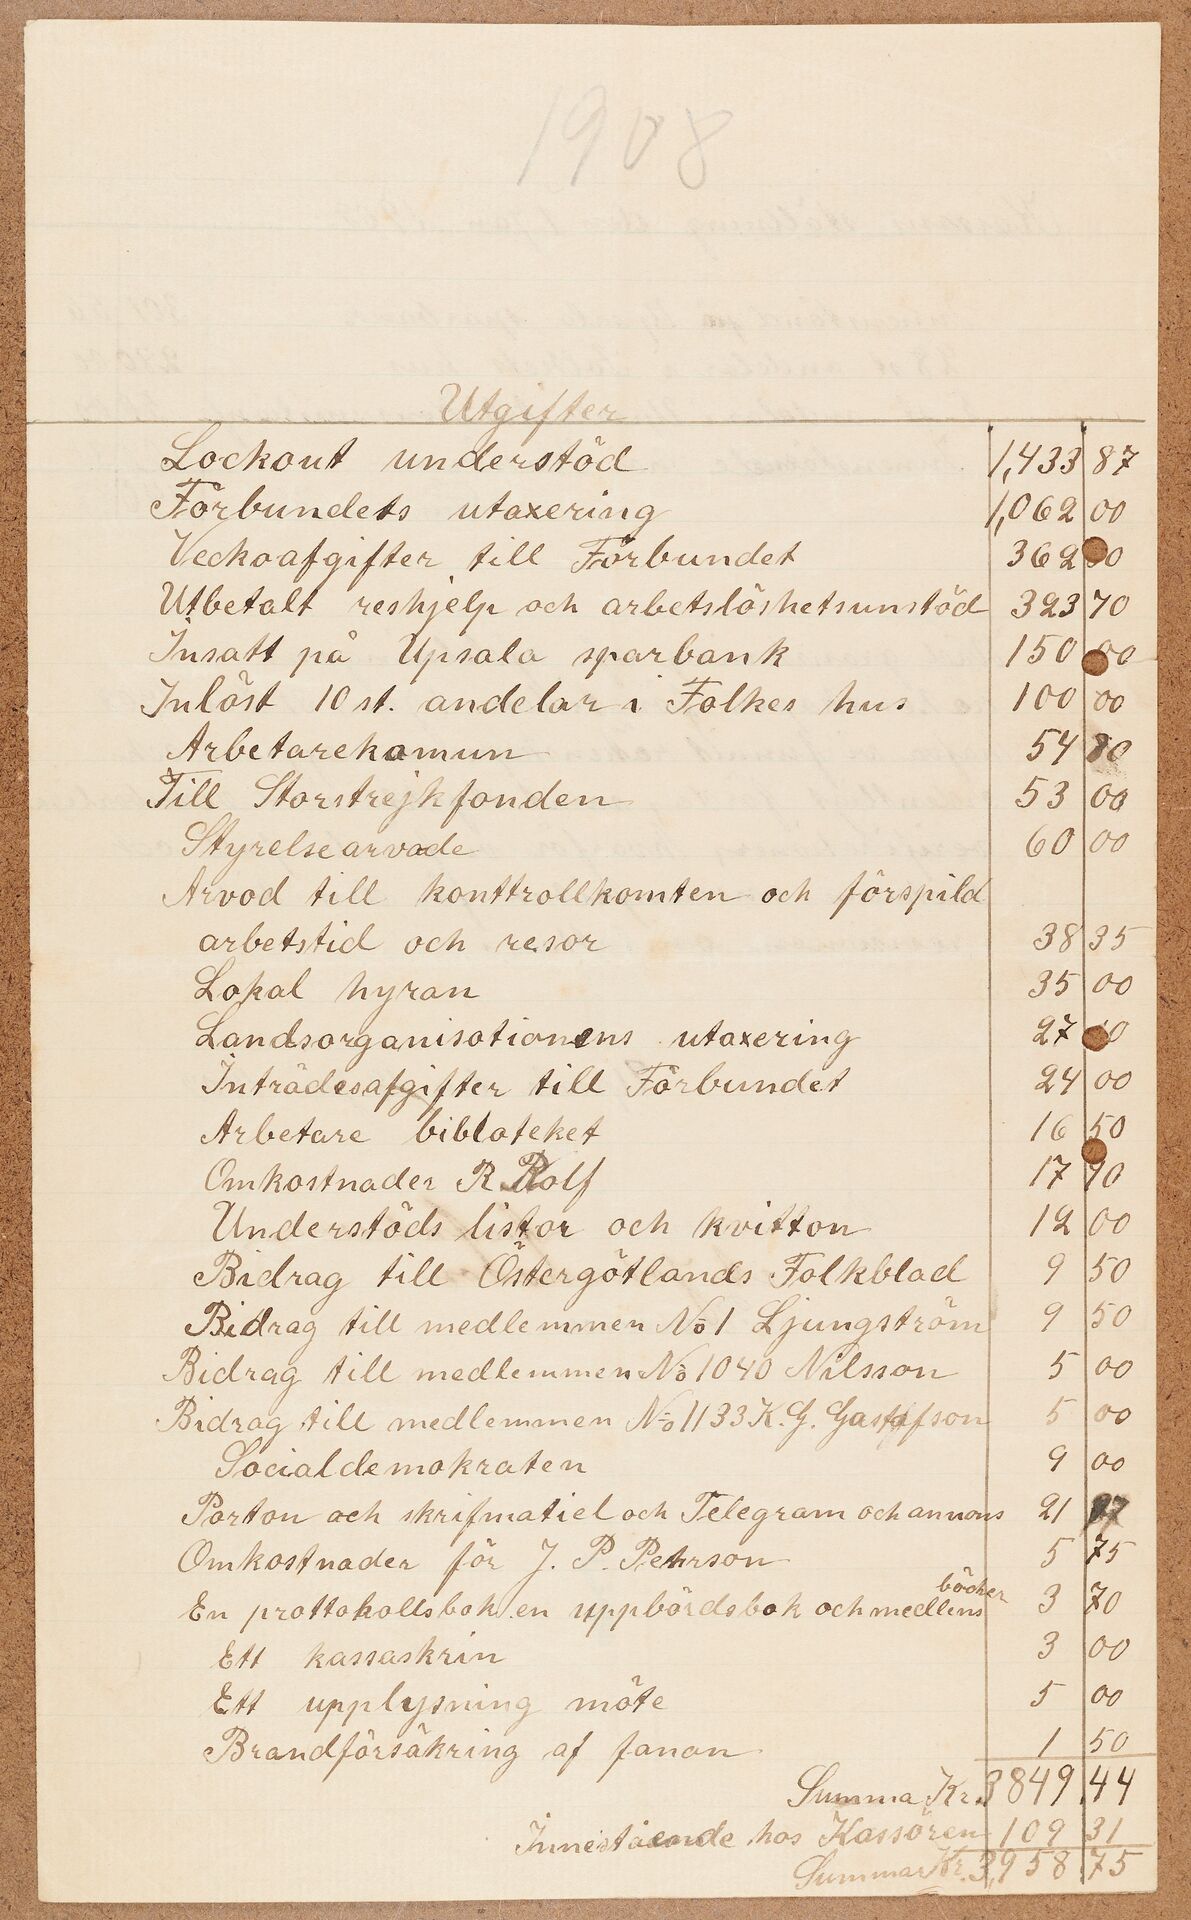 1908
Utgifter
Lockout understöd 1,433 87
Förbundets utaxering 1,062 00
Veckoafgifter till Förbundet 362 00
Utbetalt reshjelp och arbetslöshetsunstöd 323 70
Insatt på Upsala sparbank 150 00
Inlöst 10 st. andelar i Folkes hus 100 00
Arbetarekomun 54 80
Till Storstrejkfonden 53 00
Styrelsearvode 60 00
Arvod till konttrollkomten och förspild
arbetstid och resor 38 35
Lokal hyran 35 00
Landsorganisationens utaxering 27
Inträdesafgifter till Förbundet 24 00
Arbetare bibloteket 16 50
Omkostnader R. Rolf 17 70
Understöds listor och kvitton 12 00
Bidrag till Östergötlands Folkblad 9 50
Bidrag till medlemmen No 1 Ljungström 9 50
Bidrag till medlemmen No 1040 Nilsson 5 00
Bidrag till medlemmen No 1133 K. G. Gustafson 5 00
Socialdemokraten 9 00
Porton och skrifmatiel och Telegram och annons 21
Omkostnader för J. P. Pehrson 5 75
böcker
En prottokollsbok en uppbördsbok och medlems 3 70
Ett kassaskrin 3 00
Ett upplysning möte 5 00
Brandförsäkring af fanan 1 50
Summa Kr. 3849.44
Innestående hos Kassören 109 31
Summa Kr. 3,958.75